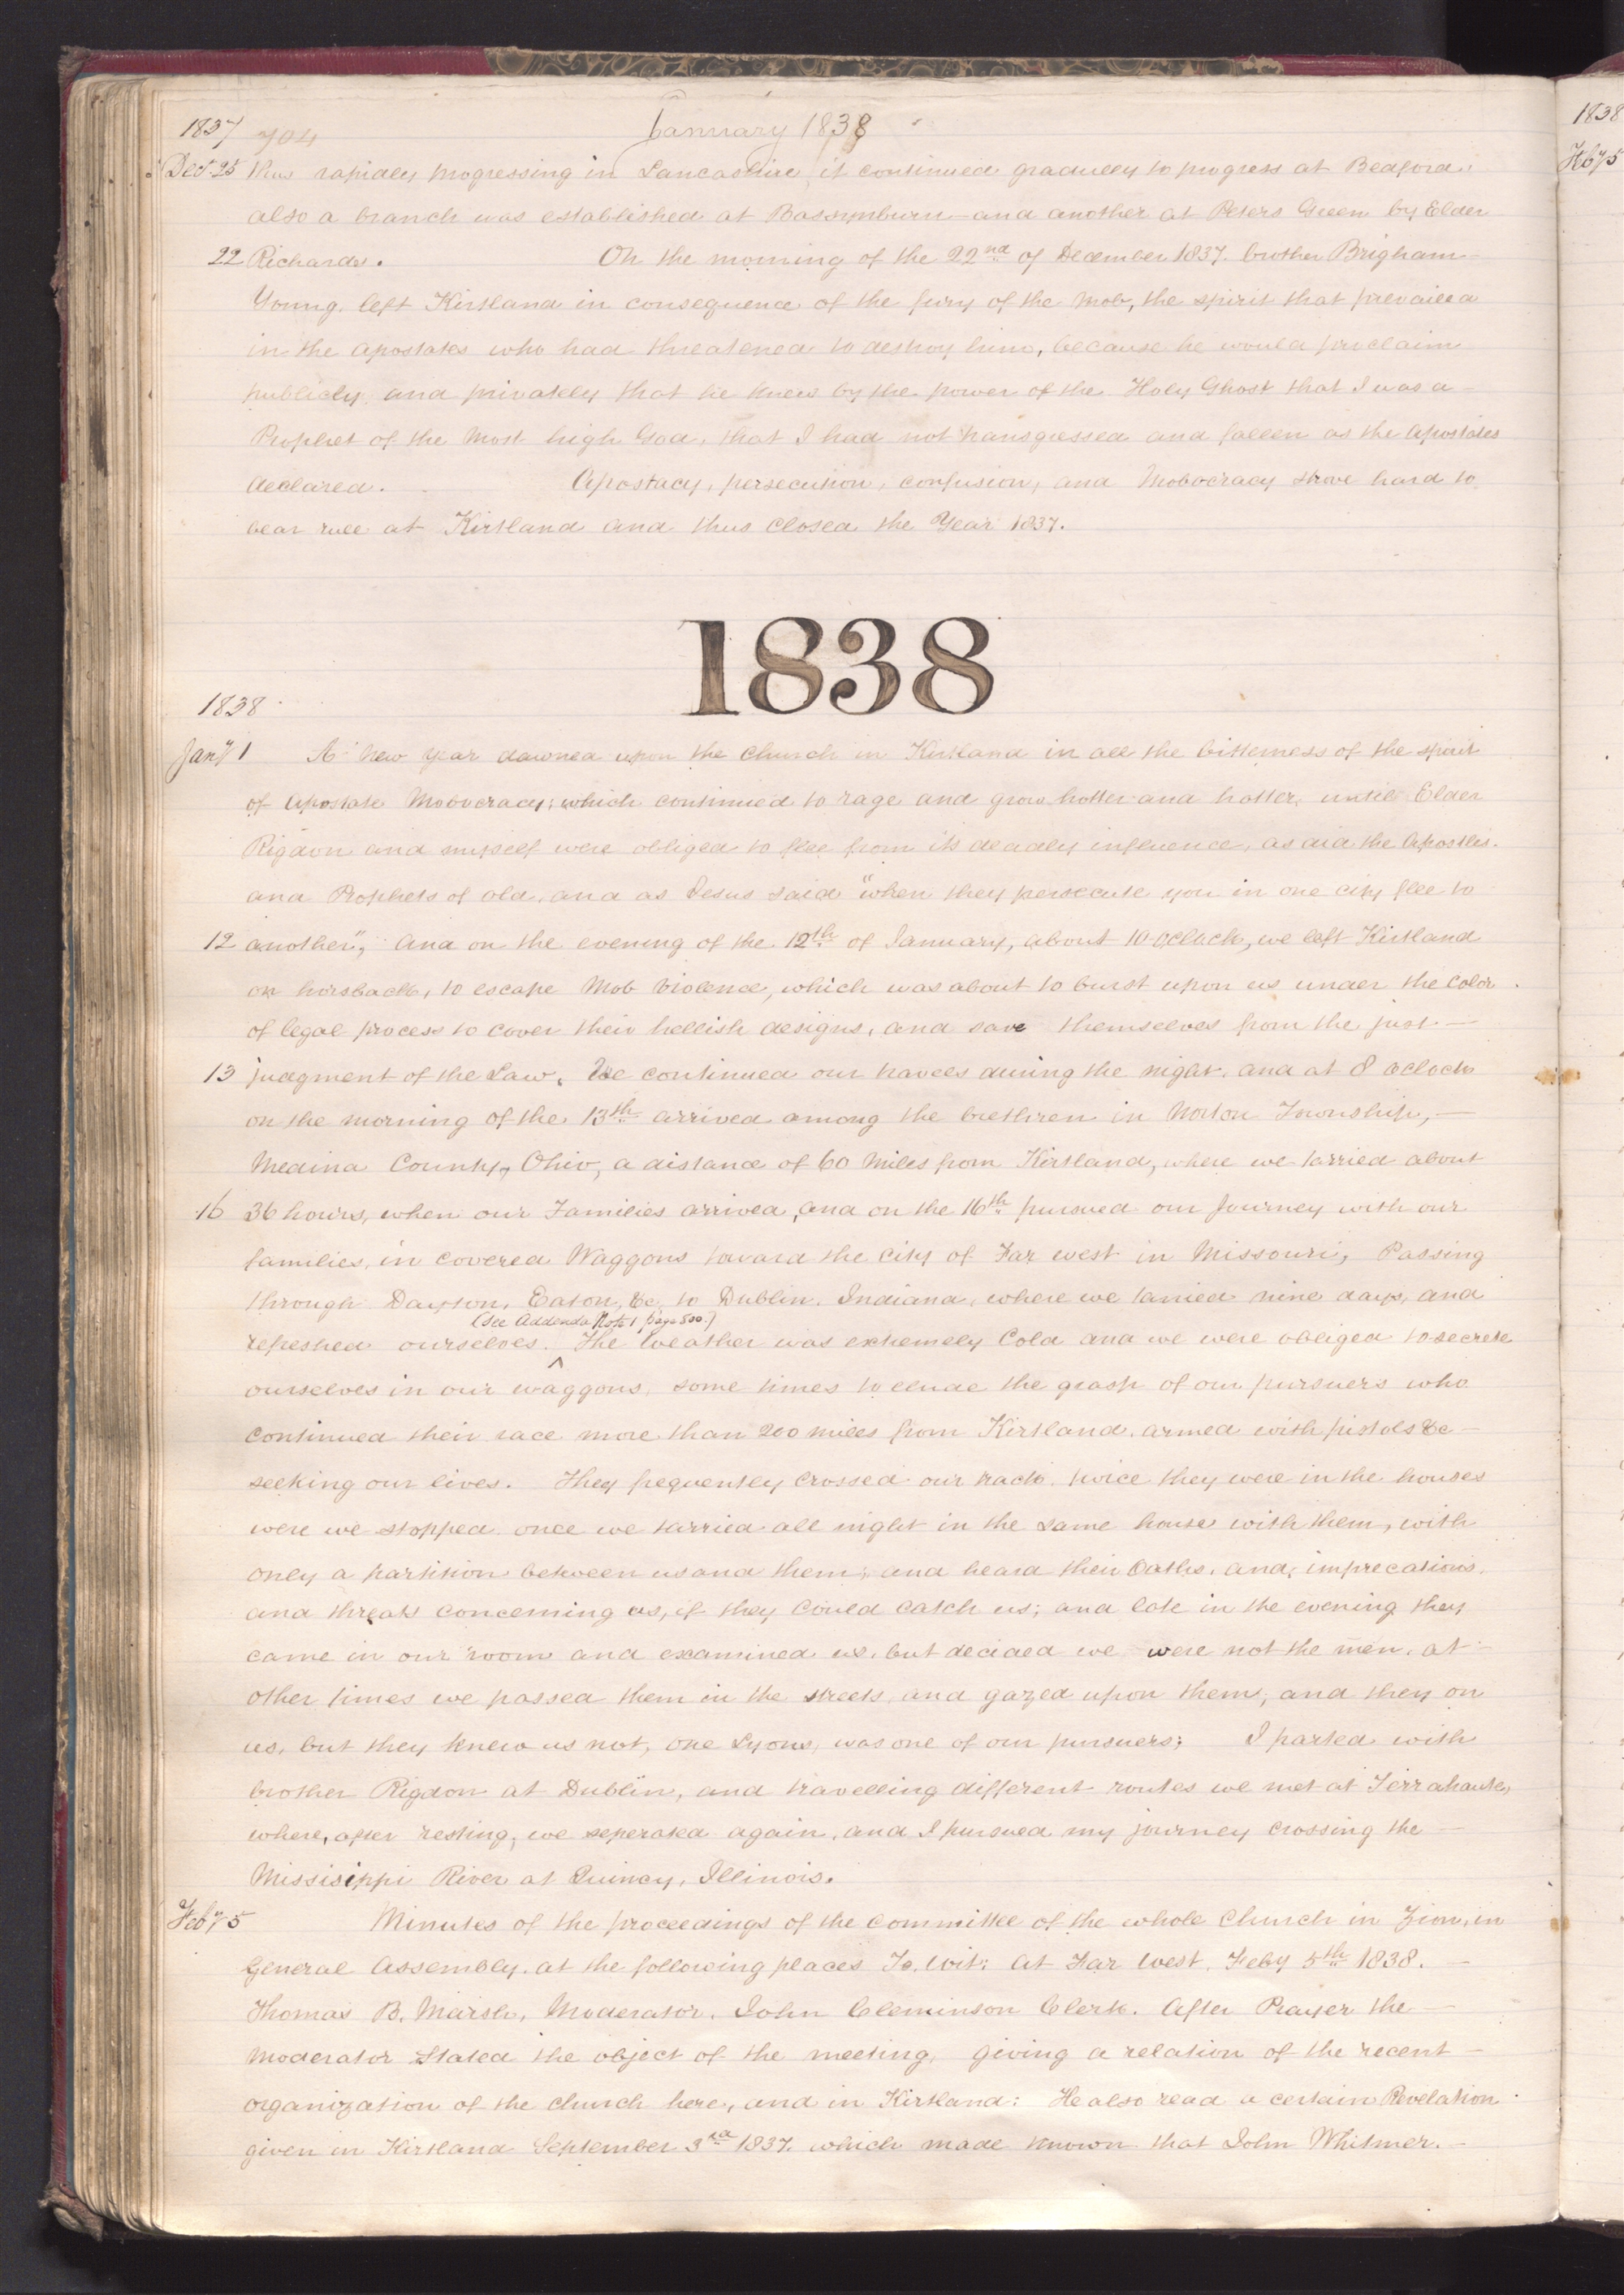 1837 704 January 1838
1838
Decr. 25 thus rapidly progressing in Lancashire, it continued gradually to progress at Bedford,
Feby 5
also a branch was established at Bassymburn—and another at Peters Green by Elder
22 Richards. On the morning of the 22nd of December 1837. brother Brigham—
Young left Kirtland in consequence of the fury of the Mob, the spirit that prevailed
in the apostates who had threatened to destroy him, because he would proclaim
publicly and privately that he knew by the power of the Holy Ghost that I was a—
Prophet of the Most high God, that I had not transgressed and fallen as the apostates
declared. Apostacy, persecution, confusion, and Mobocracy strove hard to
bear rule at Kirtland and thus closed the Year 1837.
1838
1838
Jany 1 A New year dawned upon the Church in Kirtland in all the bitterness of the spirit
of Apostate Mobocracy; which continued to rage and grow hotter and hotter, until Elder
Rigdon and myself were obliged to flee from its deadly influence, as did the Apostles.
and Prophets of old, and as Jesus said "when they persecute you in one city flee to
12 another", and on the evening of the 12th of January, about 10 oclock, we left Kirtland
on horsback, to escape Mob violence, which was about to burst upon us under the color
of legal process to cover their hellish designs, and save themselves from the just—
13 judgment of the Law. We continued our travels during the night, and at 8 oclock
on the morning of the 13th arrived among the brethren in Norton Township,—
Medina County, Ohio, a distance of 60 Miles from Kirtland, where we tarried about
16 36 hours, when our Families arrived, and on the 16th pursued our journey with our
families, in covered Waggons toward the city of Far west in Missouri, Passing
through Dayton, Eaton, &c, to Dublin, Indiana, where we tarried nine days, and
(See Addenda Note 1 page 500.)
refreshed ourselves. ^ The Weather was extremely Cold and we were obliged to secrete
ourselves in our waggons, some times to elude the grasp of our pursuers who
continued their race more than 200 miles from Kirtland, armed with pistols &c—
seeking our lives. They frequently crossed our track. twice they were in the houses
were we stopped. once we tarried all night in the same house with them, with
only a partition between us and them; and heard their Oaths, and, imprecations,
and threats concerning us, if they could catch us; and late in the evening they
came in our room and examined us, but decided we were not the men. at—
other times we passed them in the streets, and gazed upon them, and they on
us, but they knew us not, one Lyons, was one of our pursuers; I parted with
brother Rigdon at Dublin, and travelling different routes we met at Terrahaute,
where, after resting, we seperated again, and I pursued my journey crossing the—
Missisippi River at Quincy, Illinois.
Feby 5 Minutes of the proceedings of the committee of the whole Church in Zion, in
General Assembly, at the following places To. Wit; At Far West, Feby 5th 1838.—
Thomas B. Marsh, Moderator, John Cleminson Clerk. After Prayer the—
Moderator Stated the object of the meeting, giving a relation of the recent—
organization of the church here, and in Kirtland: He also read a certain Revelation
given in Kirtland September 3rd 1837. which made known that John Whitmer.—